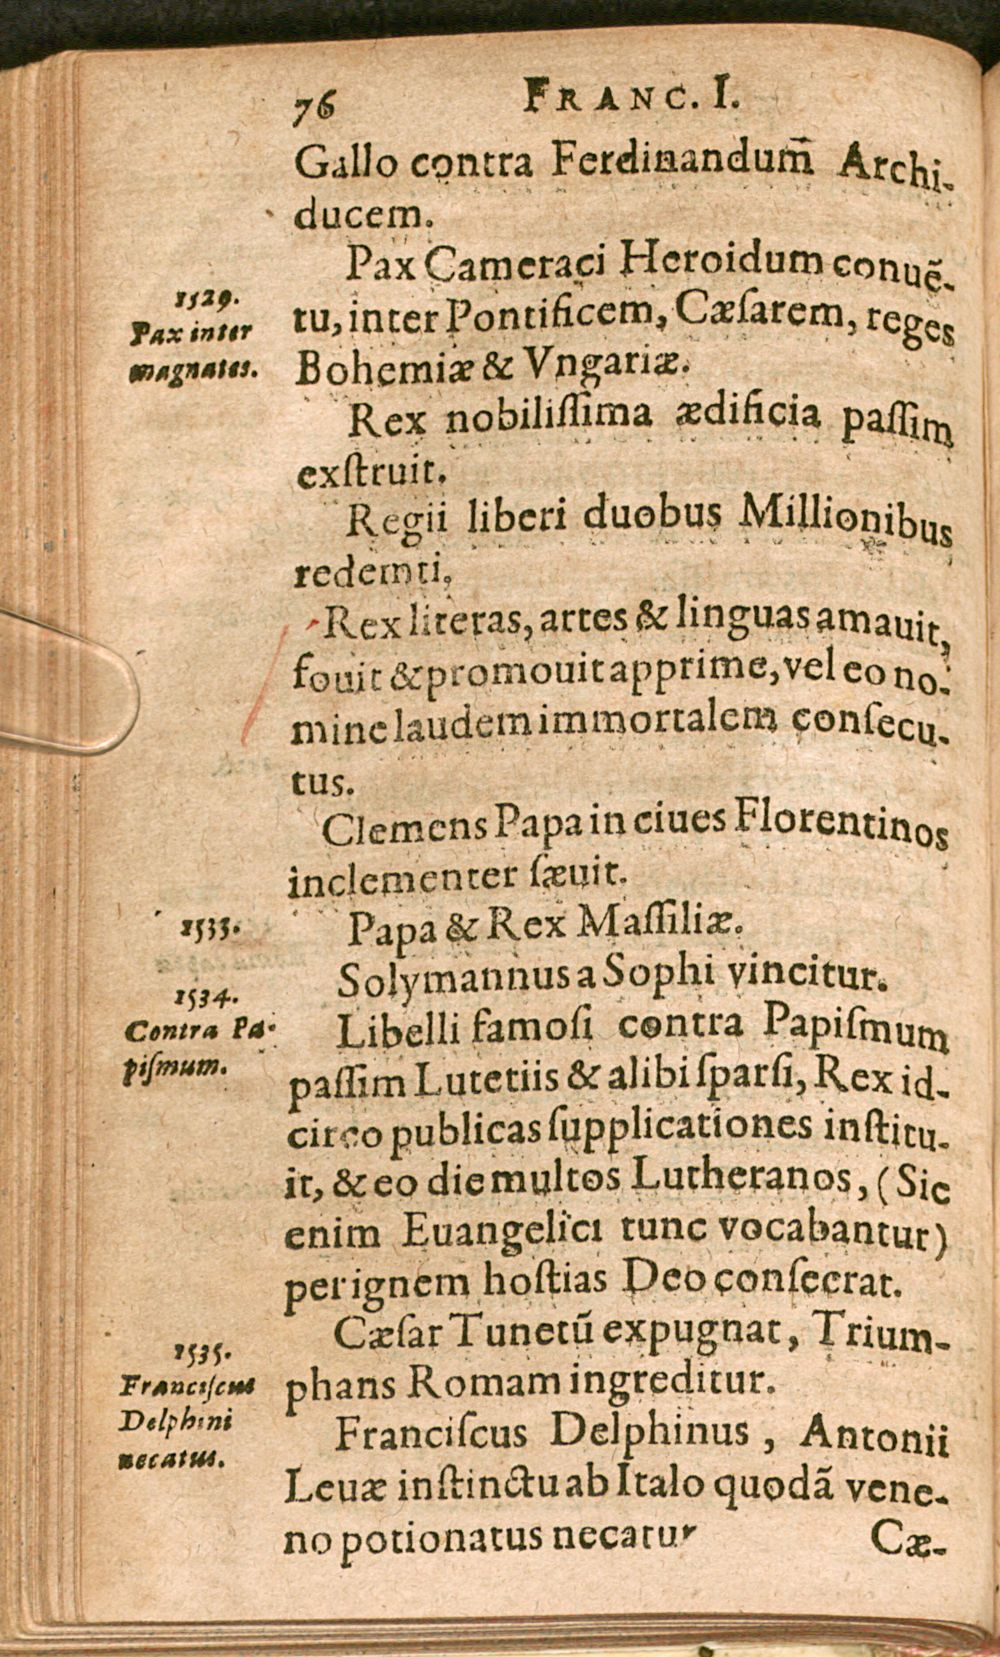 76 FRANC. I.
Gallo contra Ferdinandum̄ Archi-
ducem.
Pax Cameraci Heroidum conuē-
1529.
Pax inter
magnates.
tu, inter Pontificem, Cæſarem, reges
Bohemiæ & Vngariæ.
Rex nobiliſſima ædificia paſſim
exſtruit.
Regii liberi duobus Millionibus
redemti.
Rex literas, artes & linguas amauit,
fouit & promouit apprime, vel eo no-
mine laudem immortalem conſecu-
tus.
Clemens Papa in ciues Florentinos
inclementer ſæuit.
1533.
Papa & Rex Maſſiliæ.
Solymannus a Sophi vincitur.
1534.
Contra Pa-
piſmum.
Libelli famoſi contra Papiſmum
paſſim Lutetiis & alibi ſparſi, Rex id-
circo publicas ſupplicationes inſtitu-
it, & eo die multos Lutheranos, (Sic
enim Euangelici tunc vocabantur)
per ignem hoſtias Deo conſecrat.
Cæſar Tunetū expugnat, Trium-
1535.
Franciſcus
Delphini
necatus.
phans Romam ingreditur.
Franciſcus Delphinus, Antonii
Leuæ inſtinctu ab Italo quodā vene-
no potionatus necatur
Cæ-